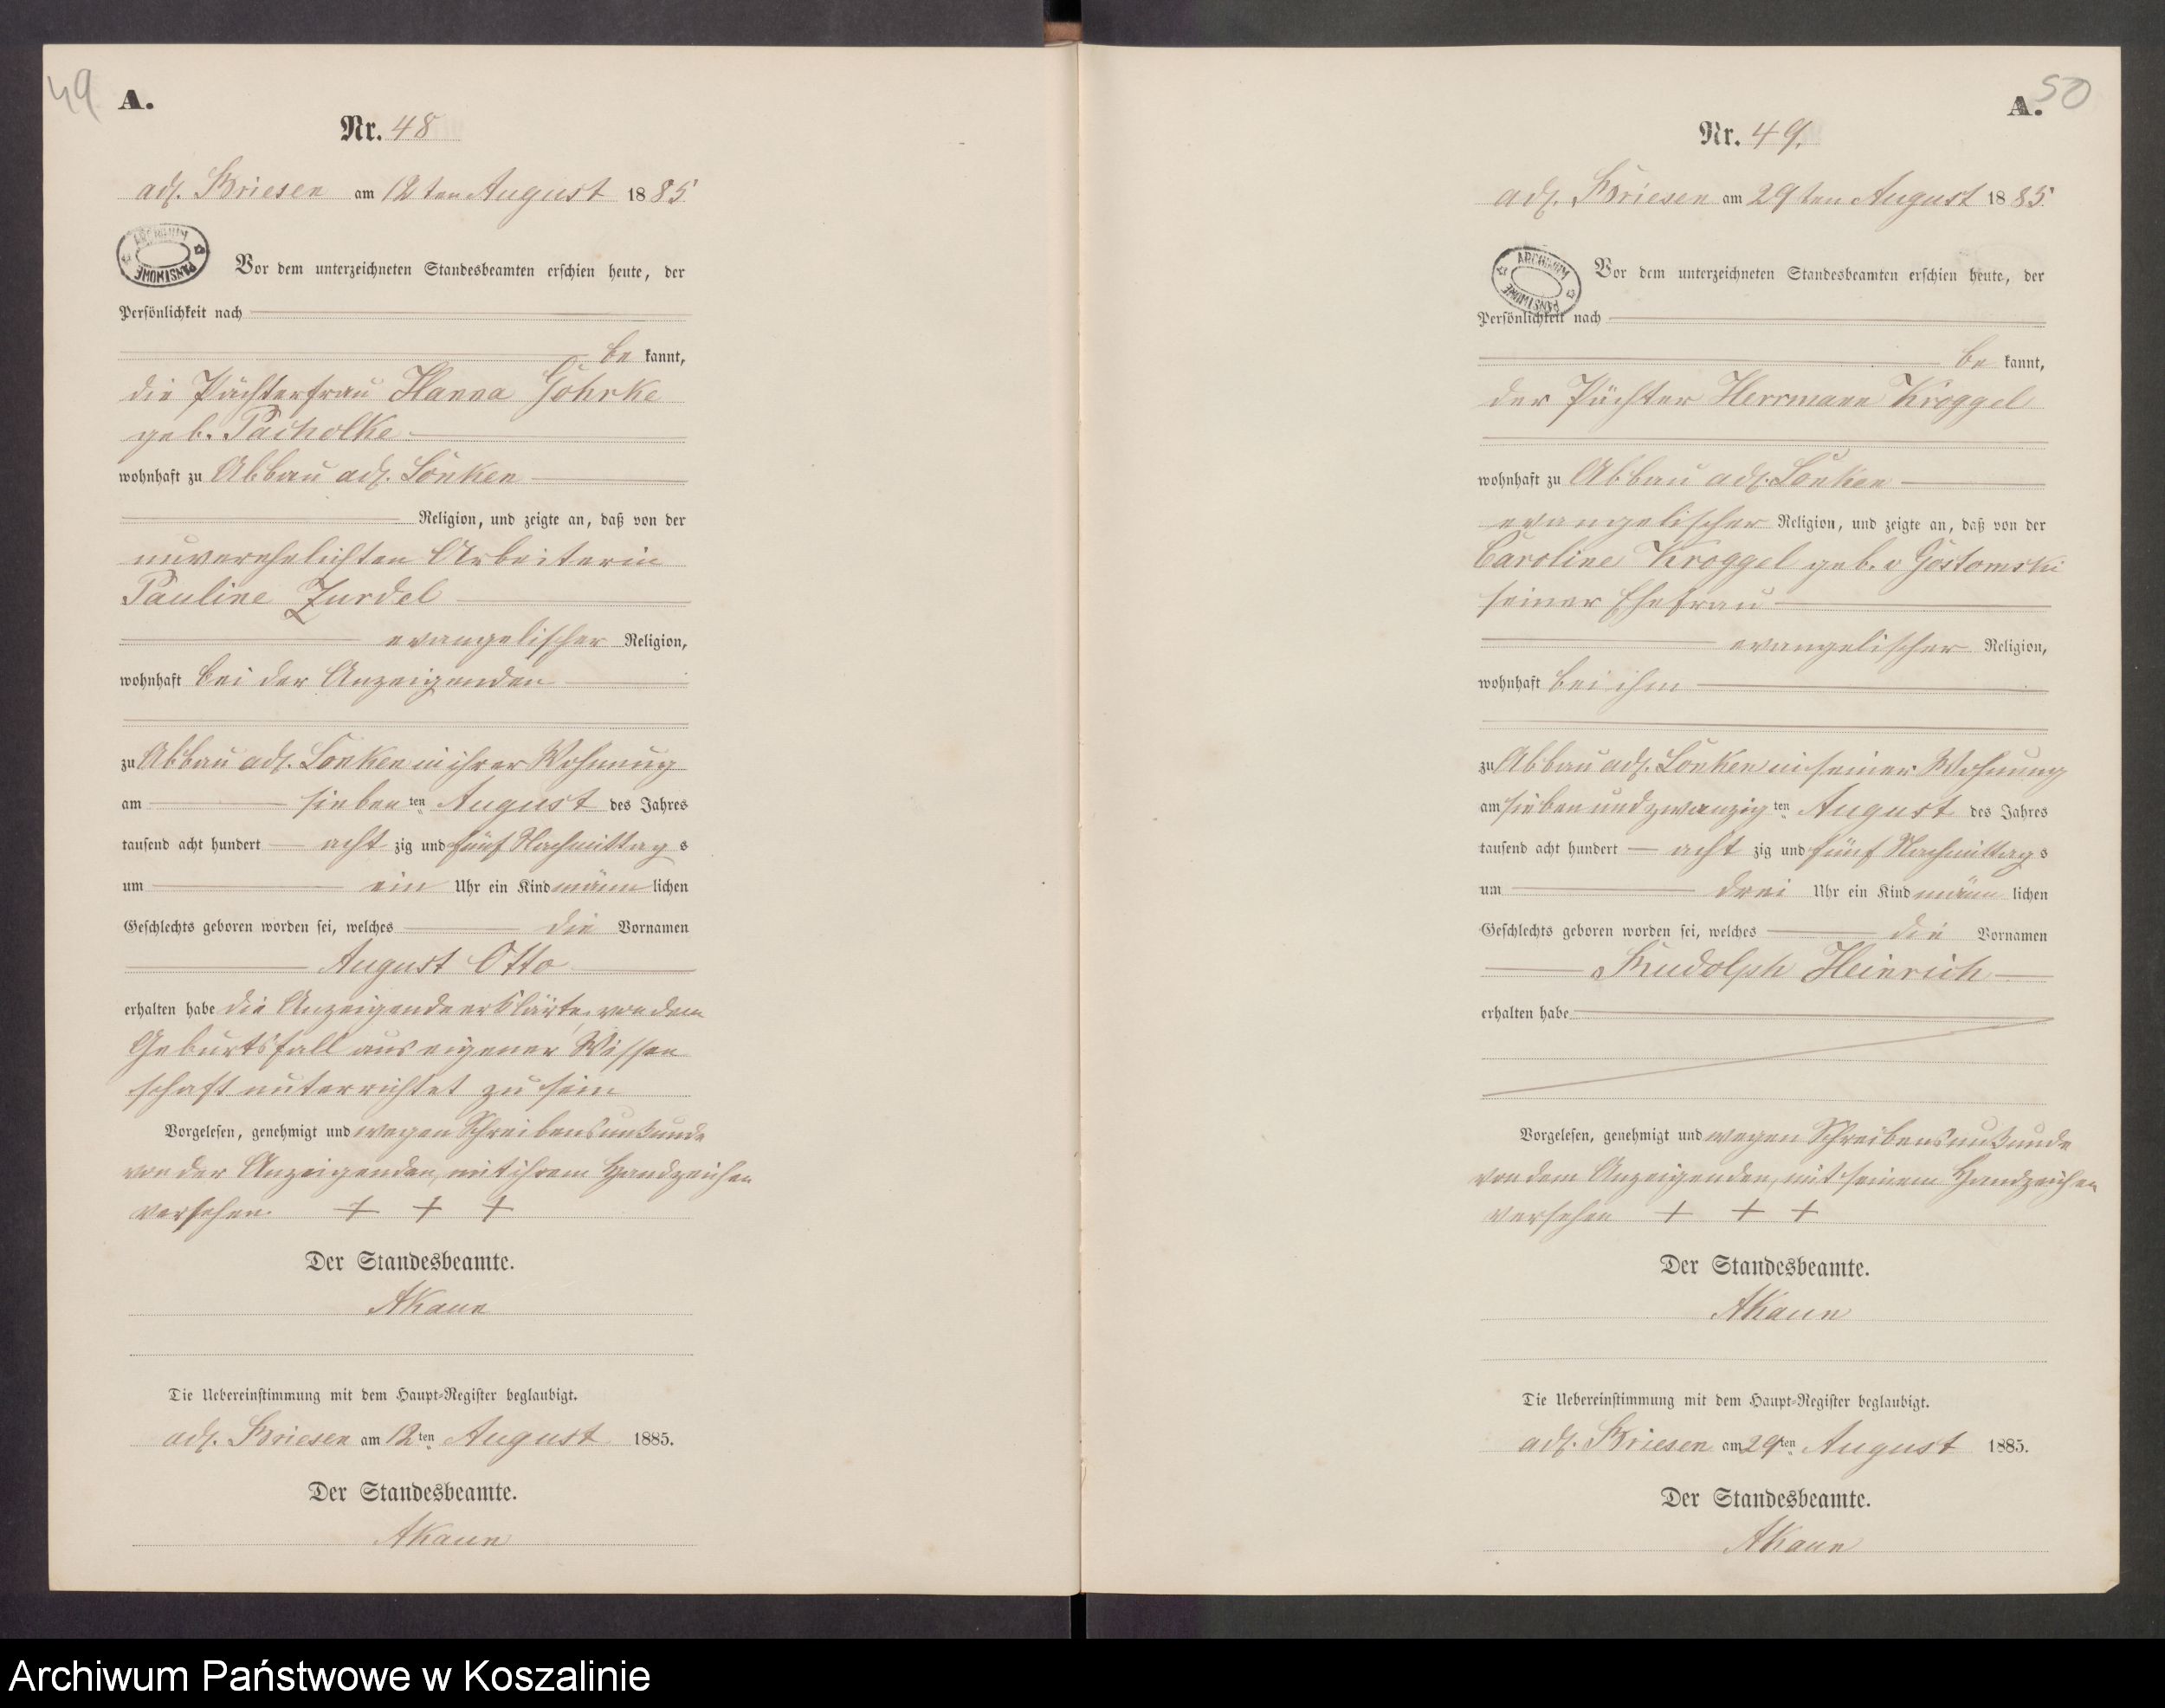 49
A.
Nr. 48
adl. Briesen am 12ten August 1885.
ARCHIWUM PAŃSTWOWE
Vor dem unterzeichneten Standesbeamten erschien heute, der
Persönlichkeit nach
be kannt,
die Pächterfrau Hanna Gohrke
geb. Pacholke
wohnhaft zu Abbau adl. Lonken
Religion, und zeigte an, daß von der
unverehelichten Arbeiterin
Pauline Zurdel
evangelischer Religion,
wohnhaft bei der Anzeigenden
zu Abbau adl. Lonken in ihrer Wohnung
am sieben ten August des Jahres
tausend acht hundert acht zig und fünf Nachmittag s
um ein Uhr ein Kind männ lichen
Geschlechts geboren worden sei, welches die Vornamen
August Otto
erhalten habe die Anzeigende erklärte, von dem
Geburtsfall aus eigener Wissen
schaft unterrichtet zu sein
Vorgelesen, genehmigt und wegen Schreibensunkunde
von der Anzeigenden, mit ihrem Handzeichen
versehen. + + +
Der Standesbeamte.
AKaun
Die Uebereinstimmung mit dem Haupt-Register beglaubigt.
adl. Briesen am 12ten August 1885.
Der Standesbeamte.
AKaun
50
A.
Nr. 49.
adl. Briesen am 29ten August 1885.
ARCHIWUM PAŃSTWOWE
Vor dem unterzeichneten Standesbeamten erschien heute, der
Persönlichkeit nach
be kannt,
der Pächter Herrmann Kroggel
wohnhaft zu Abbau adl. Lonken
evangelischer Religion, und zeigte an, daß von der
Caroline Kroggel geb. v Gostomski
seiner Ehefrau
evangelischer Religion,
wohnhaft bei ihm
zu Abbau adl. Lonken in seiner Wohnung
am sieben und zwanzig ten August des Jahres
tausend acht hundert acht zig und fünf Nachmittag s
um drei Uhr ein Kind männ lichen
Geschlechts geboren worden sei, welches die Vornamen
Rudolph Heinrich
erhalten habe
Vorgelesen, genehmigt und wegen Schreibensunkunde
von dem Anzeigenden, mit seinem Handzeichen
versehen + + +
Der Standesbeamte.
AKaun
Die Uebereinstimmung mit dem Haupt-Register beglaubigt.
adl. Briesen am 29ten August 1885.
Der Standesbeamte.
AKaun
Archiwum Państwowe w Koszalinie